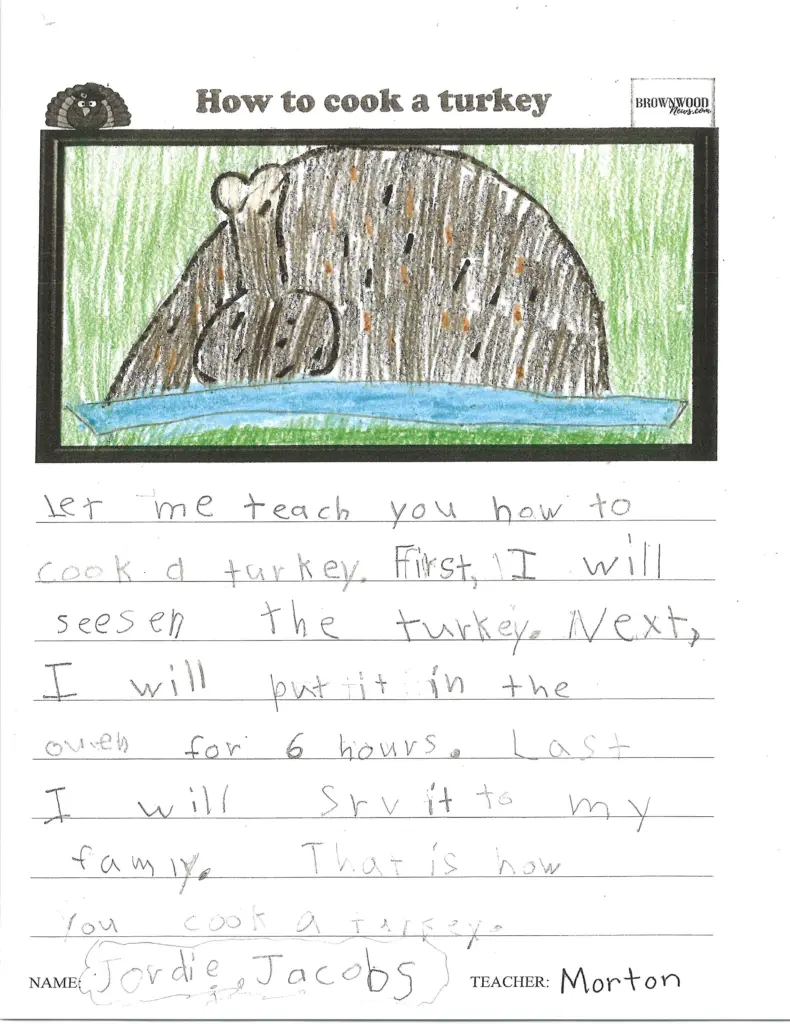 How to cook a turkey
BROWNWOOD
News.com
Let me teach you how to
cook a turkey. First, I will
seesen the turkey. Next,
I will put it in the
ouven for 6 hours. Last
I will Srv it to my
famiy. That is how
You cook a turkey.
NAME: Jordie Jacobs TEACHER: Morton